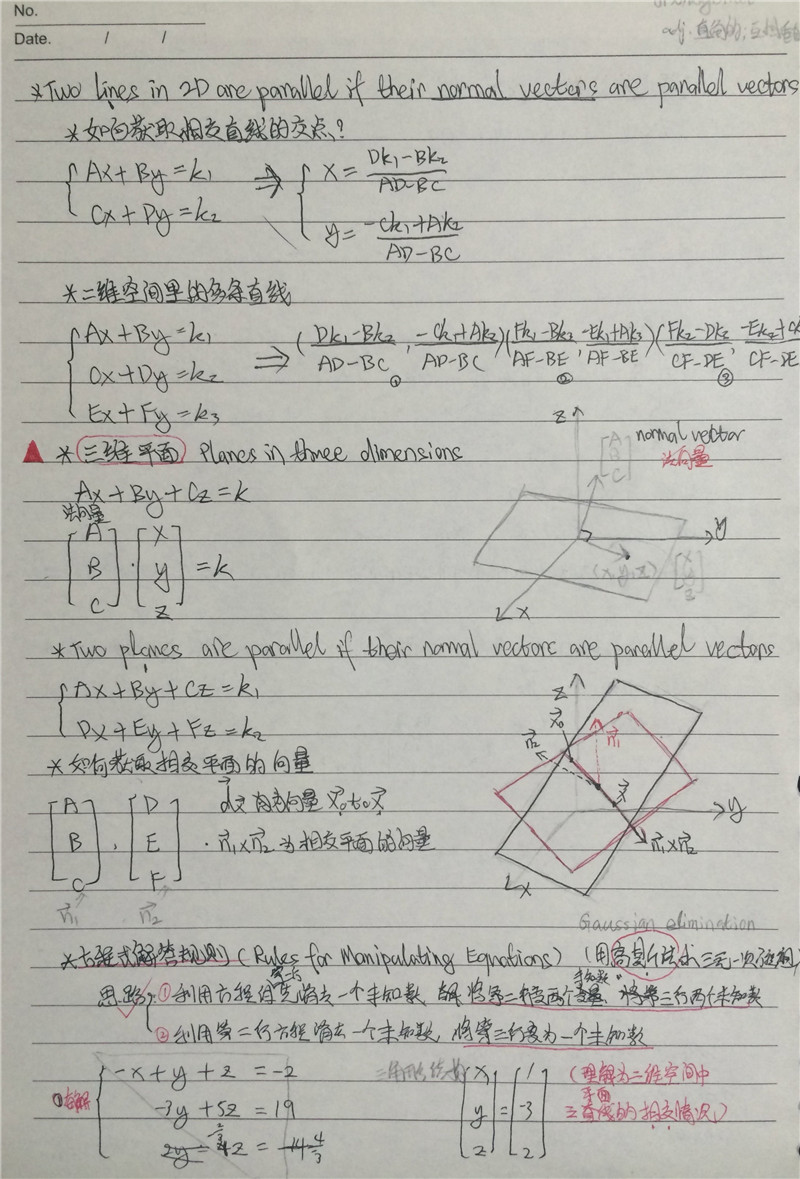 No.
adj. 直角的;互相垂
Date. / /
*Two lines in 2D are parallel if their normal vectors are parallel vectors
*如何获取相交直线的交点?
Ax+By=k₁ ⇒ x = (Dk₁-Bk₂)/(AD-BC)
Cx+Dy=k₂ y = (-Ck₁+Ak₂)/(AD-BC)
*二维空间里的多条直线
Ax+By=k₁
Cx+Dy=k₂ ⇒ ((Dk₁-Bk₂)/(AD-BC), (-Ck₁+Ak₂)/(AD-BC)) ① ((Fk₁-Bk₃)/(AF-BE), (-Ek₁+Ak₃)/(AF-BE)) ② ((Fk₂-Dk₃)/(CF-DE), (-Ek₂+Ck)/(CF-DE)) ③
Ex+Fy=k₃
* 三维平面 Planes in three dimensions
Ax+By+Cz=k
法向量
[A B C]·[x y z]=k
z
[A B C] normal vector
法向量
y
(x,y,z) [x y z]
x
*Two planes are parallel if their normal vectors are parallel vectors
Ax+By+Cz=k₁
Dx+Ey+Fz=k₂
*如何获取相交平面的向量
[A B C], [D E F] · n⃗₁×n⃗₂ 为相交平面的向量
d⃗ 方向向量 x⃗₀ to x⃗
n⃗₁ n⃗₂
z
x⃗₀
n⃗₂ n⃗₁
x⃗
y
n⃗₁×n⃗₂
x
Gaussian elimination
*方程式解答规则 (Rules for Manipulating Equations) (用高斯消去法求三元一次方程)
思路: ①利用方程首先消去一个未知数, 将第二行变两个未知数, 将第三行两个未知数
②利用第二行方程消去一个未知数, 将第三行变为一个未知数
-x+y+z=-2
-3y+5z=19
2/3 z = 4/3
[x y z]=[1 -3 2]
(理解为三维空间中
三平面的相交情况)